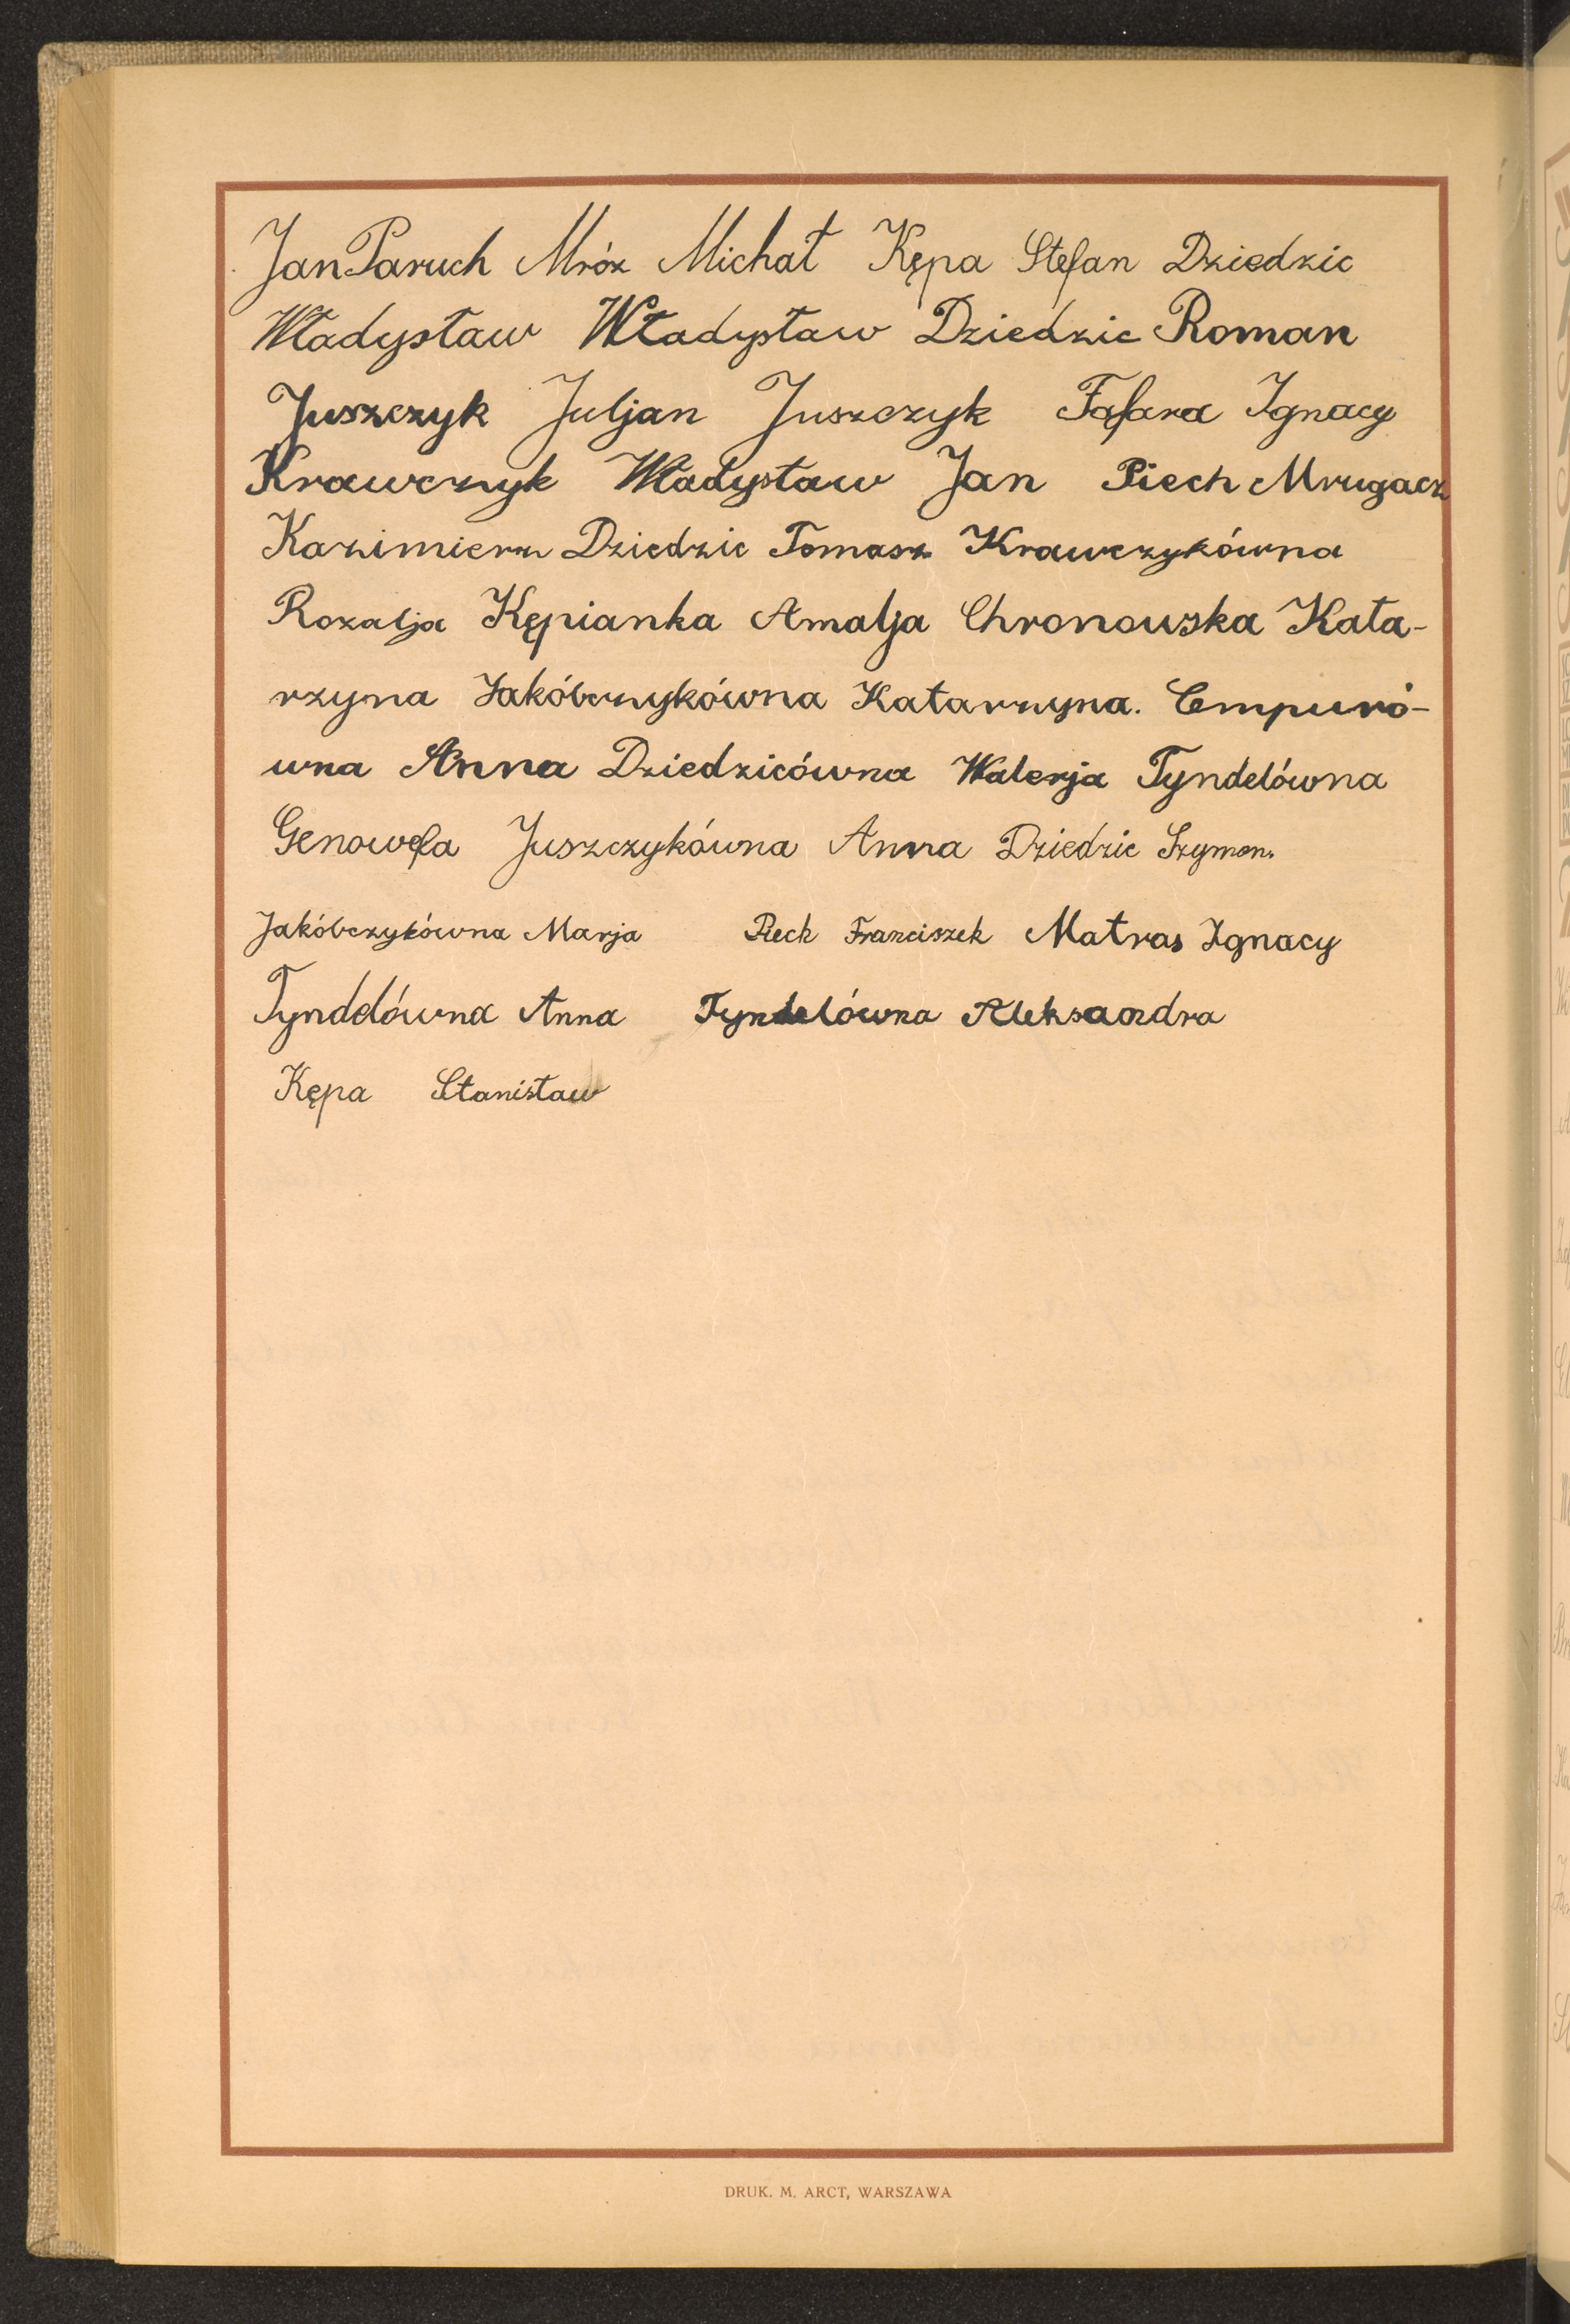 Jan Paruch Mróz Michał Kępa Stefan Dziedzic
Władysław Władysław Dziedzic Roman
Juszczyk Juljan Juszczyk Fafara Ignacy
Krawczyk Władysław Jan Piech Mrugacz
Kazimierz Dziedzic Tomasz Krawczykówna
Rozalja Kępianka Amalja Chronowska Kata-
rzyna Jakóbczykówna Katarzyna. Cempuró-
wna Anna Dziedzicówna Walerja Tyndelówna
Genowefa Juszczykówna Anna Dziedzic Szymon.
Jakóbczykówna Marja Piech Franciszek Matras Ignacy
Tyndelówna Anna Tyndelówna Aleksandra
Kępa Stanisław
DRUK. M. ARCT, WARSZAWA